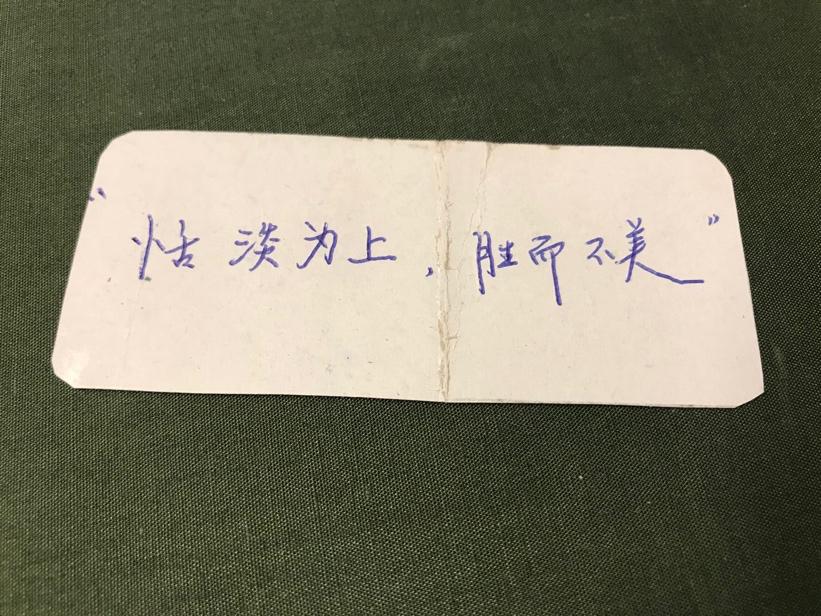 “恬淡为上，胜而不美”